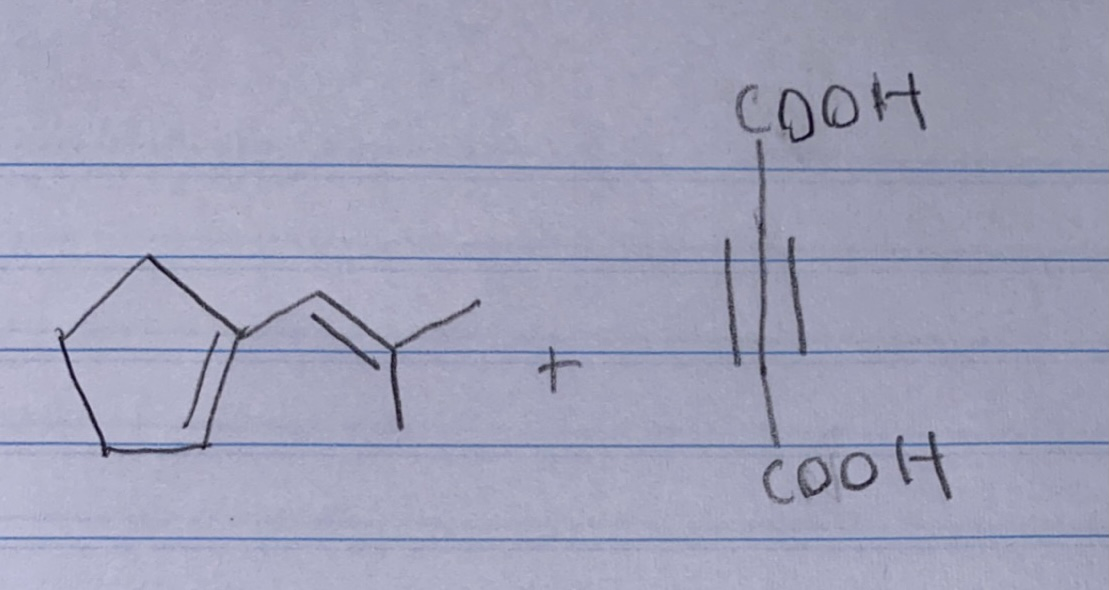 COOH
+
COOH